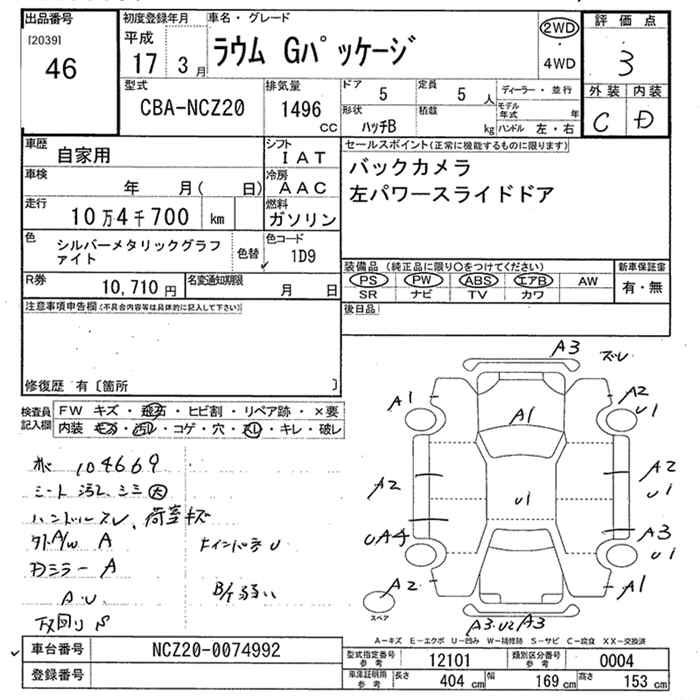 出品番号
[2039]
46
初度登録年月
平成
17 3月
車名・グレード
ラウム Gパッケージ
2WD
・
4WD
評価点
3
外装 内装
C D
型式
CBA-NCZ20
排気量
1496
CC
ドア
5
定員
5 人
形状
ハッチB
積載
kg
ディーラー・並行
モデル年式 年
ハンドル 左・右
車歴
自家用
シフト
IAT
車検
年 月( 日)
冷房
AAC
走行
10万4千700 km
燃料
ガソリン
色
シルバーメタリックグラファイト
色替
色コード
1D9
R券
10,710 円
名変通知期限
月 日
セールスポイント(正常に機能するものに限ります)
バックカメラ
左パワースライドドア
装備品(純正品に限り○をつけてください)
PS PW ABS エアB AW
SR ナビ TV カワ
新車保証書
有・無
後日品
注意事項申告欄(不具合内容等は具体的に記入して下さい)
修復歴 有〔箇所 〕
検査員
記入欄
FW キズ・飛石・ヒビ割・リペア跡・×要
内装 キズ・汚レ・コゲ・穴・スレ・キレ・破レ
ホ 104669
シート汚レ、シミ大
ハンドルスレ、荷室キズ
外A/W A
Fミラー A
A・U
下回りS
B/T弱い
A3
ズレ
A1
A2
U1
A1
A2
A2
U1
U1
UA4
A3
U1
A2
A1
スペア
A3・U2 A3
A-キズ E-エクボ U-凹み W-補修跡 S-サビ C-腐食 XX-交換済
車台番号 NCZ20-0074992
登録番号
型式指定番号
参考
12101
類別区分番号
参考
0004
車庫証明用
参考
長さ 404 cm
幅 169 cm
高さ 153 cm